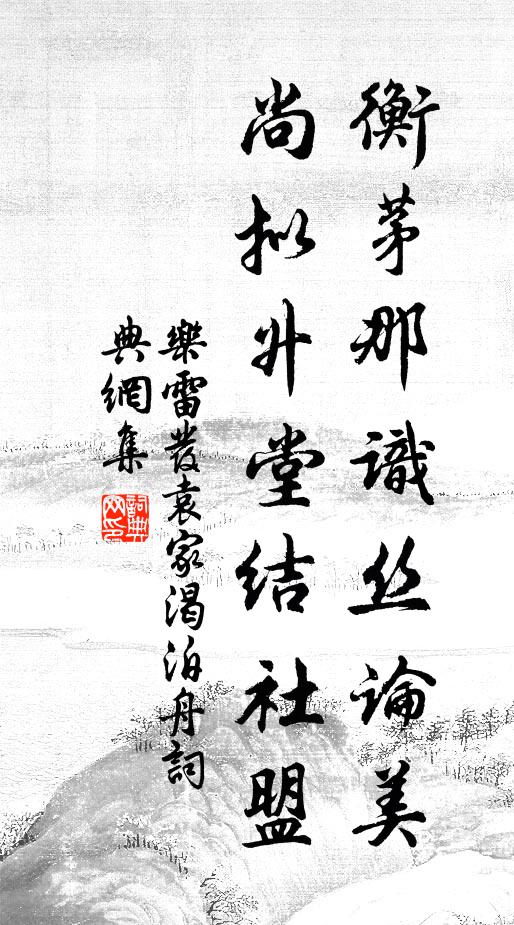 衡茅那識丝論美
尚拟升堂结社盟
樂雷發袁家渴泊舟詞
典網集
詞典网印